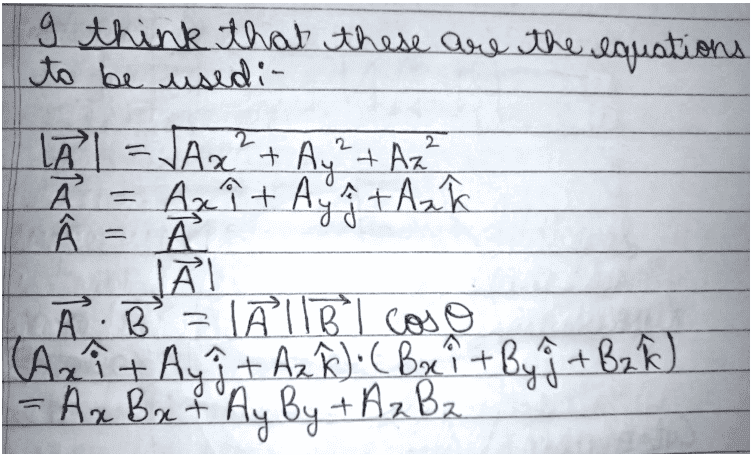 I think that these are the equations
to be used:-
|A⃗| = √Ax² + Ay² + Az²
A⃗ = Axî + Ayĵ + Azk̂
Â = A⃗
|A⃗|
A⃗ · B⃗ = |A⃗||B⃗| cosθ
(Axî + Ayĵ + Azk̂)·(Bxî + Byĵ + Bzk̂)
= AxBx + AyBy + AzBz